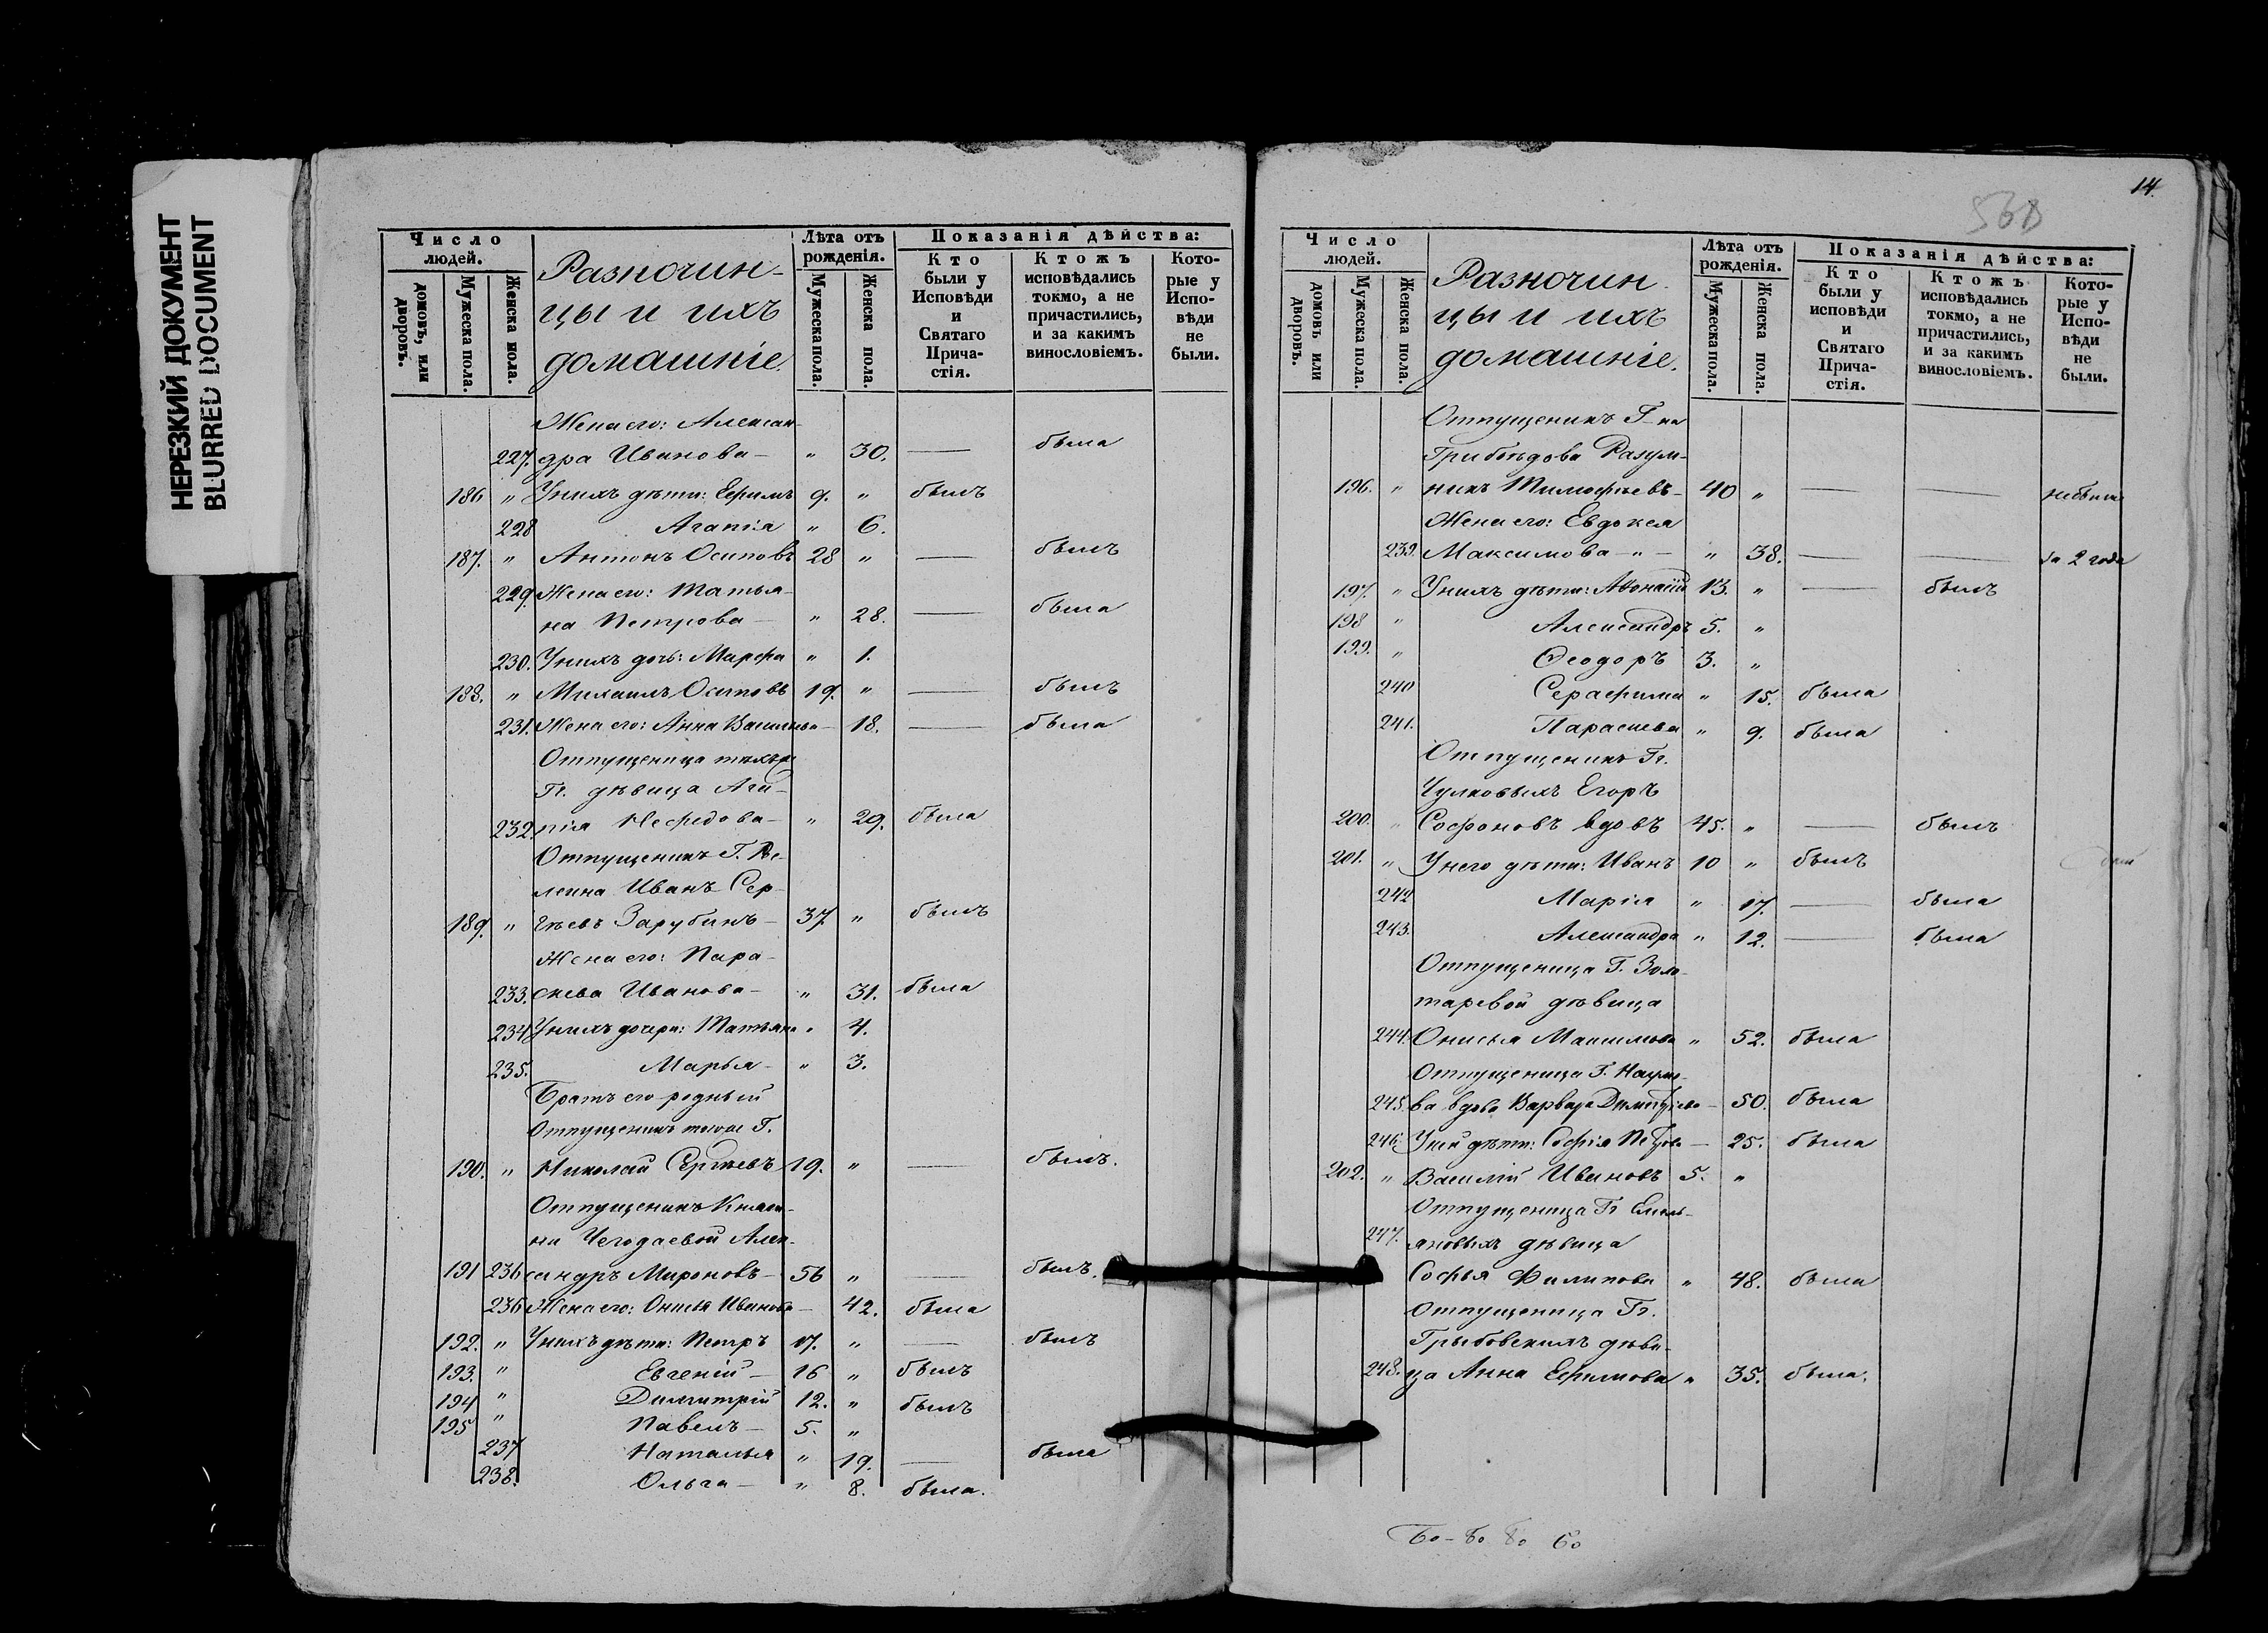 НЕРЕЗКИЙ ДОКУМЕНТ
BLURRED DOCUMENT
Число людей.
домовъ, или дворовъ.
Мужеска пола.
Женска пола.
Разночин-
цы и ихъ
домашніе.
Лѣта отъ рожденія.
Мужеска пола.
Женска пола.
Показанія дѣйства:
Кто были у Исповѣди и Святаго Прича-стія.
Ктожъ исповѣдались токмо, а не причастились, и за какимъ винословіемъ.
Кото-рые у Испо-вѣди не были.
Жена его: Алексан-
227. дра Иванова — " 30. — была
186 " У нихъ дѣти: Ефимъ 9. " былъ
228 Агапія " 6.
187. " Антонъ Осиповъ 28 " — былъ
229. Жена его: Татья-
на Петрова — " 28. — была
230. У нихъ дочь: Марфа " 1.
188. " Михаилъ Осиповъ 19. " — былъ
231. Жена его: Анна Васильева — 18. — была
Отпущеница тѣхъ же
Гг. дѣвица Ага-
232. пія Нефедова — " 29. была
Отпущеникъ Г.
Иванъ Сер-
189. " гѣевъ Зарубинъ — 37. " былъ
Жена его: Пара-
233. скева Иванова — " 31. была
234 У нихъ дочери: Татьяна " 4.
235. Марья — " 3.
Братъ его родный
Отпущеникъ тогоже Г.
190. " Николай Сергѣевъ 19. " — былъ.
Отпущеникъ Княги-
ни Чегодаевой Алек-
191 236 сандръ Мироновъ — 56 " — былъ.
236 Жена его: Онисья Иванова — 42. была
192. " У нихъ дѣти: Петръ 17. " — былъ
193. " Евгеній — 16 " былъ
194 " Димитрій 12. " былъ
195 " Павелъ — 5. "
237 Наталья " 19. — была
238. Ольга — " 8. была.
14.
Число людей.
домовъ или дворовъ.
Мужеска пола.
Женска пола.
Разночин-
цы и ихъ
домашніе.
Лѣта отъ рожденія.
Мужеска пола.
Женска пола.
Показанія дѣйства:
Кто были у исповѣди и Святаго Прича-стія.
Ктожъ исповѣдались токмо, а не причастились, и за какимъ винословіемъ.
Кото-рые у Испо-вѣди не были.
Отпущеникъ Г-на
Грибоѣдова Разум-
196. " никъ Тимофѣевъ — 40 " — — небыли
Жена его: Евдокея
239. Максимова — " — " 38. — — за 2 года
197. " У нихъ дѣти: Аѳонасій 13. " — былъ
198 " Александръ 5. "
199. " Ѳеодоръ 3. "
240 Серафима " 15. была
241. Параскева " 9. была
Отпущеникъ Гг.
Чулковыхъ Егоръ
200. " Софоновъ вдовъ 45. " — былъ
201. " У него дѣти: Иванъ 10 " былъ
242 Марія " 17. — была
243. Александра " 12. — была
Отпущеница Г. Золо-
таревой дѣвица
244. Онисья Максимова " 52. была
Отпущеница Г. Наумо-
245. ва вдова Варвара Димитріева — 50. была
246. У ней дѣти: Софія Петрова — 25. была
202. " Василій Ивановъ 5. "
Отпущеница Гг Емель-
247. яновыхъ дѣвица
Софья Филипова " 48. была
Отпущеница Гг.
Грыбовскихъ дѣви-
248. ца Анна Ефимова " 35. была.